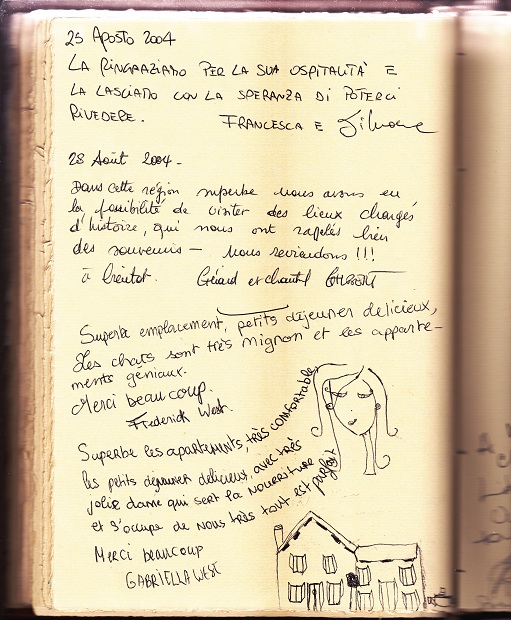 25 Agosto 2004
LA RINGRAZIAMO PER LA SUA OSPITALITÀ E
LA LASCIAMO CON LA SPERANZA DI POTERCI
RIVEDERE. FRANCESCA E
28 Août 2004 -
Dans cette région superbe nous avons eu
la possibilité de visiter des lieux chargés
d'histoire, qui nous ont rapelés bien
des souvenirs - Nous reviendrons !!!
à bientôt. Gérard et chantal
Superbe emplacement, petits déjeuner delicieux,
Les chats sont très mignon et les apparte-
ments géniaux.
Merci beaucoup.
Frederick West.
Superbe les apartements, très comfortable,
les petits déjeuner delicieux, avec très
jolie dame qui sert la nourriture
et s'occupe de nous très tout est parfait
Merci beaucoup
GABRIELLA WEST